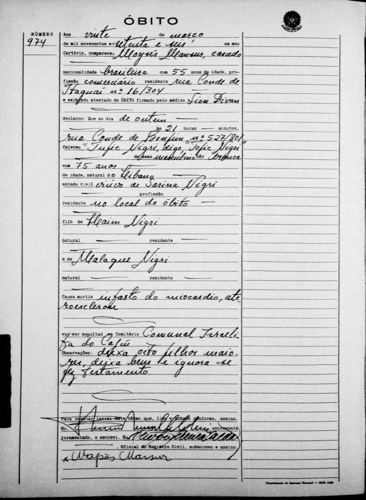 ÓBITO
NÚMERO
924
Aos vinte de março
de mil novecentos e setenta e seis em meu
Cartório, compareceu Moysés Mansur, casado
nacionalidade brasileira com 55 anos de idade, pro-
fissão comerciário residente rua Conde de
Itaguaí nº 16/304
e exibindo atestado de ÓBITO firmado pelo médico
declarou: Que no dia de ontem
às 21 horas — minutos,
rua Conde de Bonfim nº 527/801
faleceu "Tufic Nigri, digo, Tofic Nigri
do sexo masculino cor branca
com 75 anos
de idade, natural do Líbano
estado civil viúvo de Sarina Nigri
profissão
residente no local do óbito
filho de Haim Nigri
natural — residente
e de Malaque Nigri
natural residente
Causa mortis infarto do miocardio, ate
roesclerose
vai ser sepultad no Cemitério Comunal Israeli
ta do Cajú
Observações: deixa oito filhos maio-
res, deixa bens e ignora se
fez testamento
Para constar lavrei este termo que, lido e achado conforme, assino.
Eu,
juramentado, o escrevi. Eu,
, Oficial do Registro Civil, subscrevo e assino
Mansur
Departamento de Imprensa Nacional